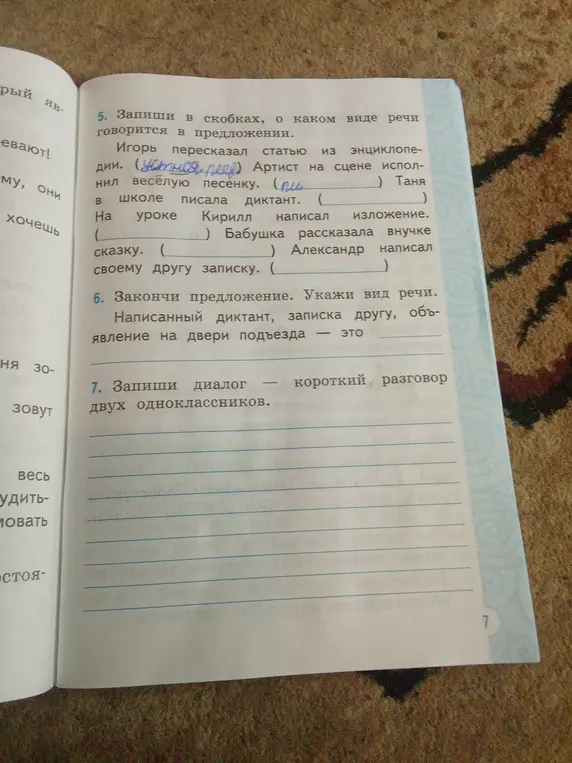 рый яв-
евают!
му, они
хочешь
ня зо-
зовут
весь
удить-
мовать
стоя-
5. Запиши в скобках, о каком виде речи
говорится в предложении.
Игорь пересказал статью из энциклопе-
дии. (устная речь) Артист на сцене испол-
нил весёлую песенку. (пи) Таня
в школе писала диктант. ( )
На уроке Кирилл написал изложение.
( ) Бабушка рассказала внучке
сказку. ( ) Александр написал
своему другу записку. ( )
6. Закончи предложение. Укажи вид речи.
Написанный диктант, записка другу, объ-
явление на двери подъезда — это
7. Запиши диалог — короткий разговор
двух одноклассников.
7